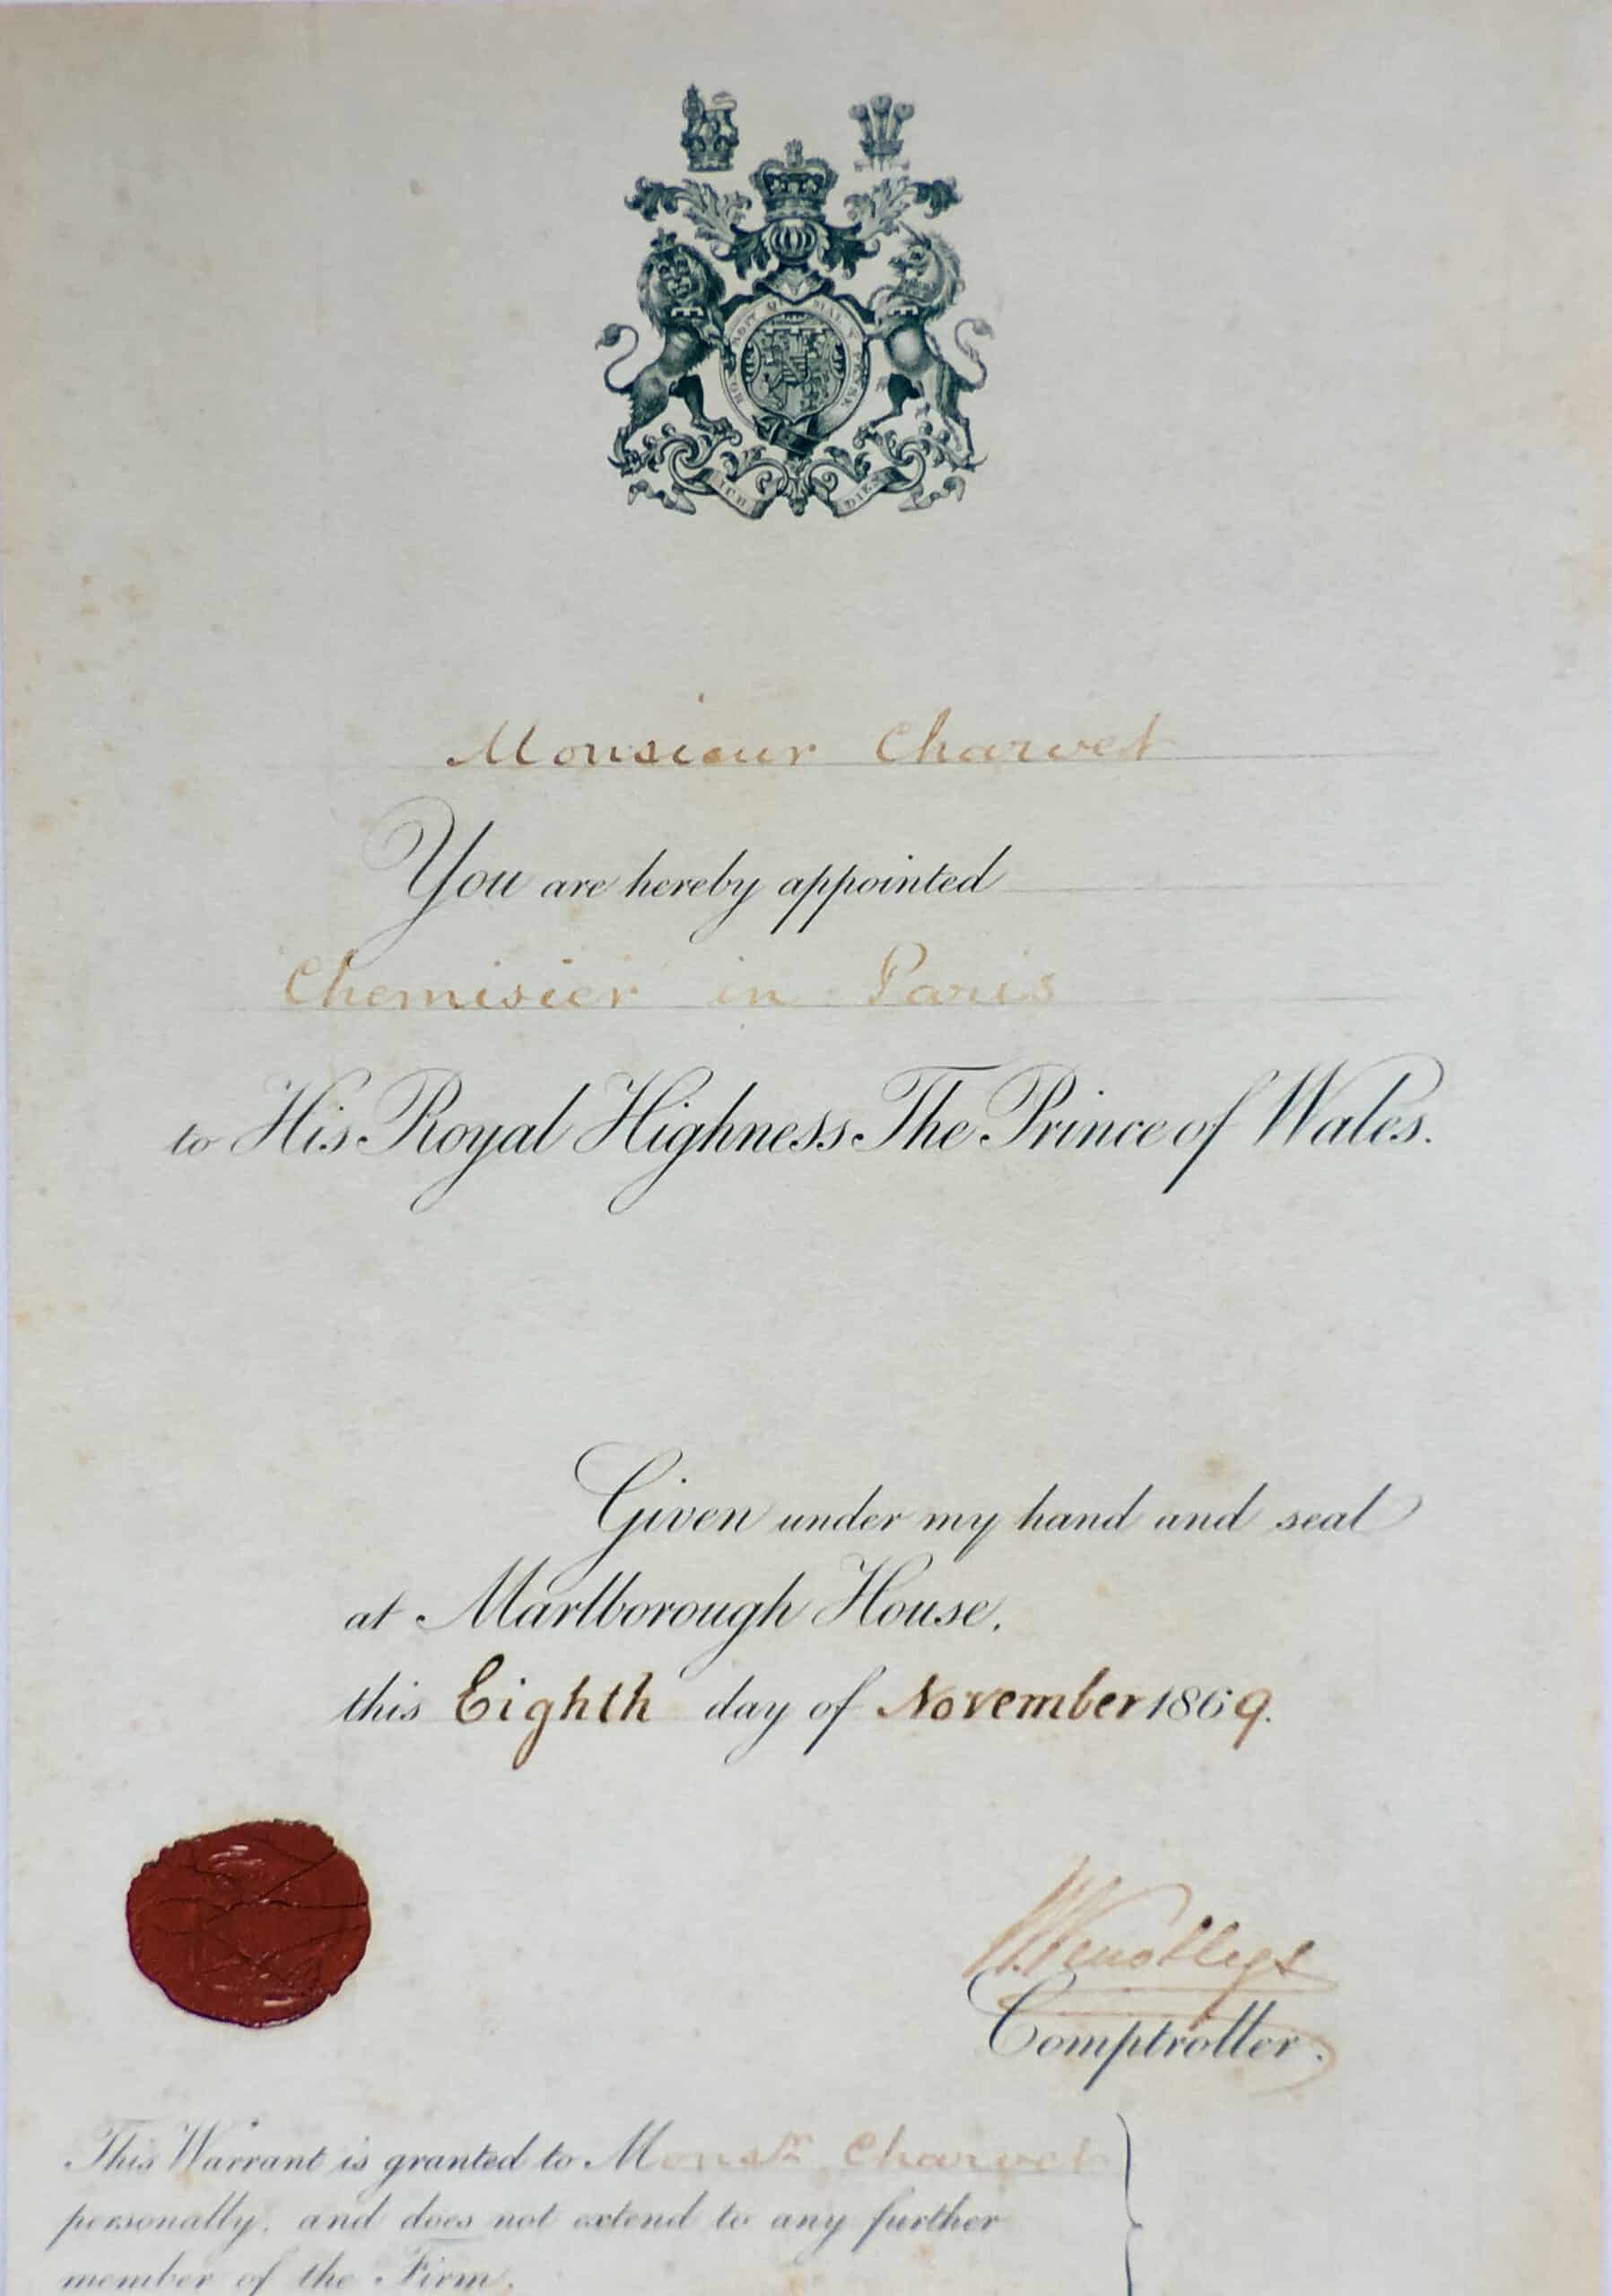 HONI SOIT QUI MAL Y PENSE
ICH DIEN
Monsieur Charvet
You are hereby appointed
Chemisier in Paris
to His Royal Highness The Prince of Wales.
Given under my hand and seal
at Marlborough House,
this Eighth day of November 1869.
Comptroller.
This Warrant is granted to Monsr. Charvet
personally, and does not extend to any further
member of the Firm.